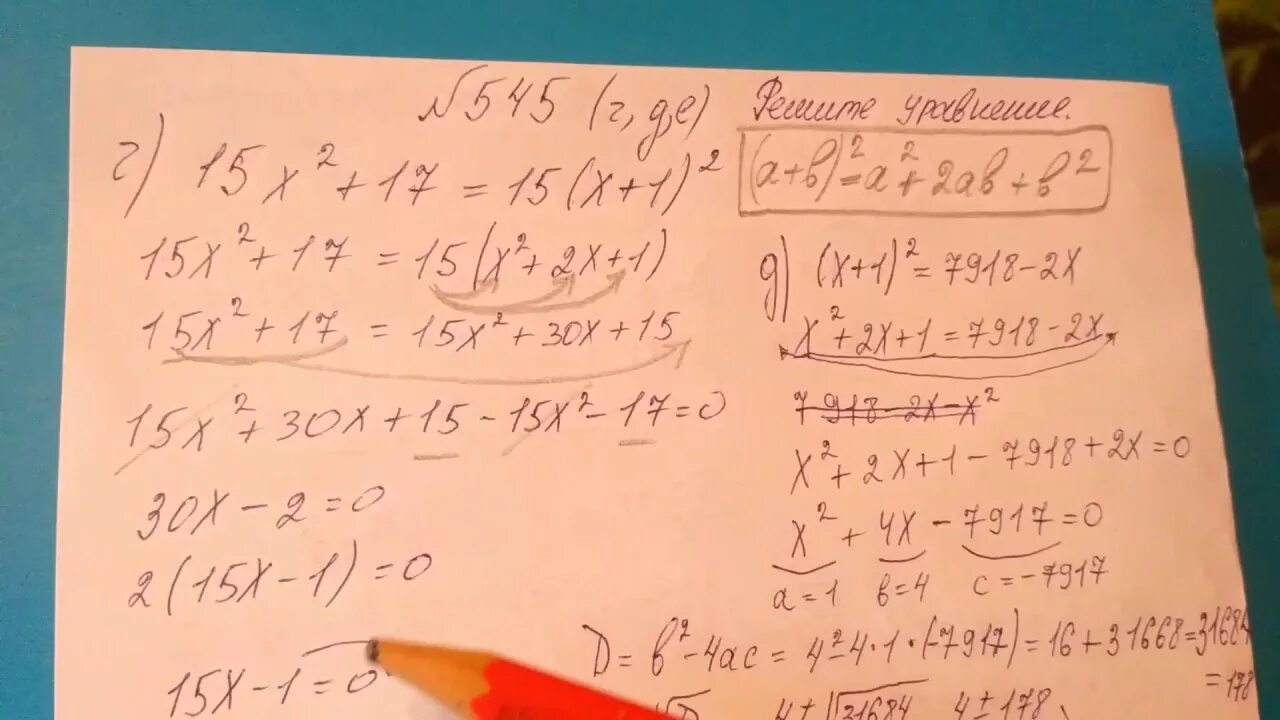 №545 (г, д, е) Решите уравнение.
(a+b)²=a²+2ab+b²
г) 15x²+17=15(x+1)²
15x²+17=15(x²+2x+1)
15x²+17=15x²+30x+15
15x²+30x+15-15x²-17=0
30x-2=0
2(15x-1)=0
15x-1=0
д) (x+1)²=7918-2x
x²+2x+1=7918-2x
7918-2x-x²
x²+2x+1-7918+2x=0
x²+4x-7917=0
a=1 b=4 c=-7917
D=b²-4ac=4²-4·1·(-7917)=16+31668=31684
=178
4±√31684 4±178